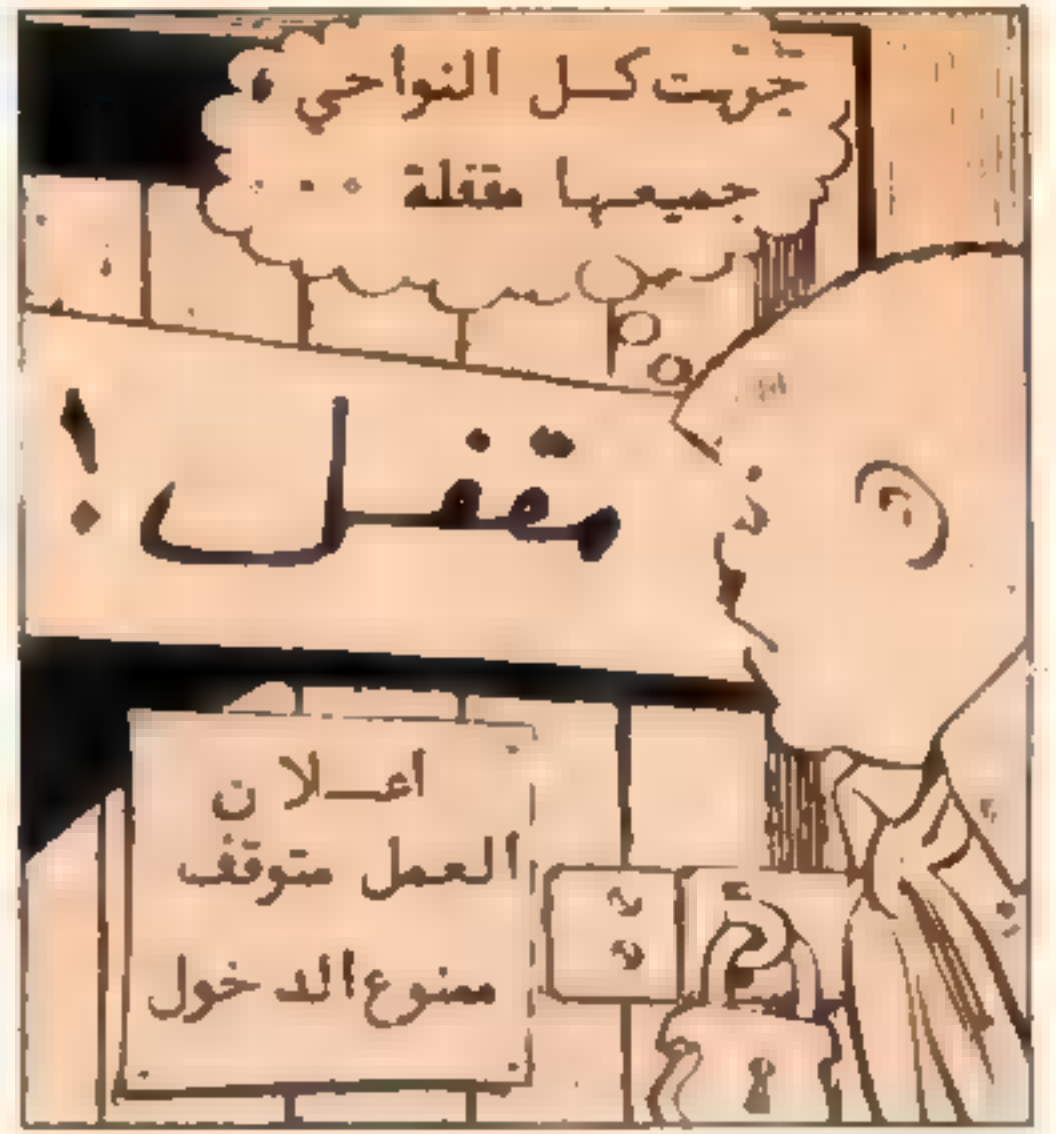 جربت كل النواحي ،
جميعها مقفلة . . .
مقفل !
اعلان
العمل متوقف
ممنوع الدخول